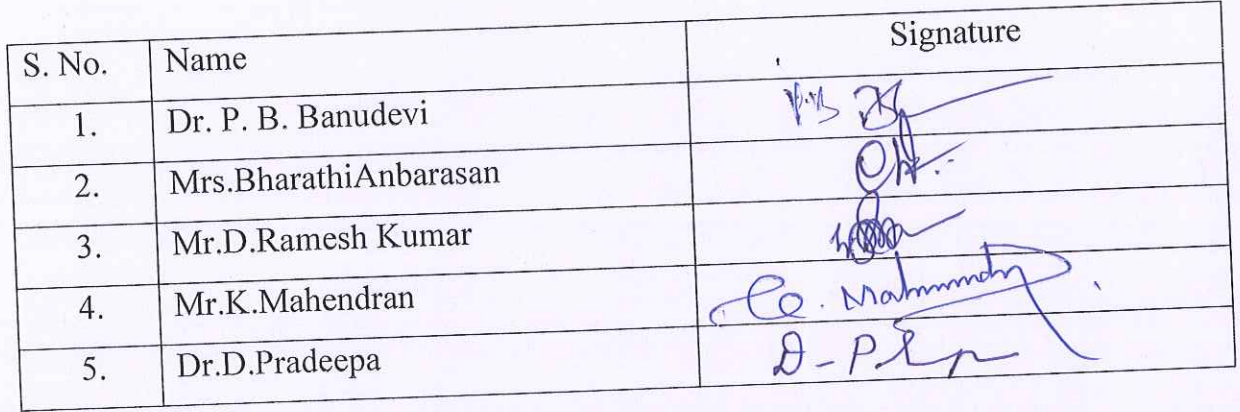 S. No. Name Signature
1. Dr. P. B. Banudevi
2. Mrs.BharathiAnbarasan
3. Mr.D.Ramesh Kumar
4. Mr.K.Mahendran
5. Dr.D.Pradeepa